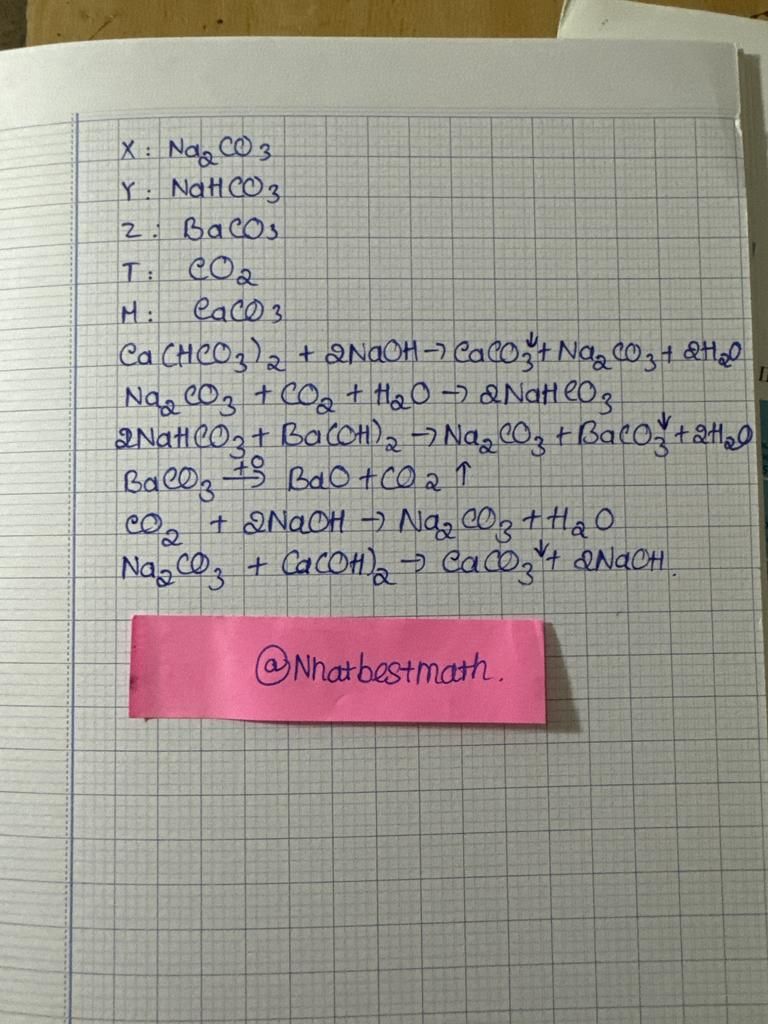 X: Na₂CO₃
Y: NaHCO₃
Z: BaCO₃
T: CO₂
M: CaCO₃
Ca(HCO₃)₂ + 2NaOH → CaCO₃↓ + Na₂CO₃ + 2H₂O
Na₂CO₃ + CO₂ + H₂O → 2NaHCO₃
2NaHCO₃ + Ba(OH)₂ → Na₂CO₃ + BaCO₃↓ + 2H₂O
BaCO₃ –t°→ BaO + CO₂ ↑
CO₂ + 2NaOH → Na₂CO₃ + H₂O
Na₂CO₃ + Ca(OH)₂ → CaCO₃↓ + 2NaOH.
@Nhatbestmath.